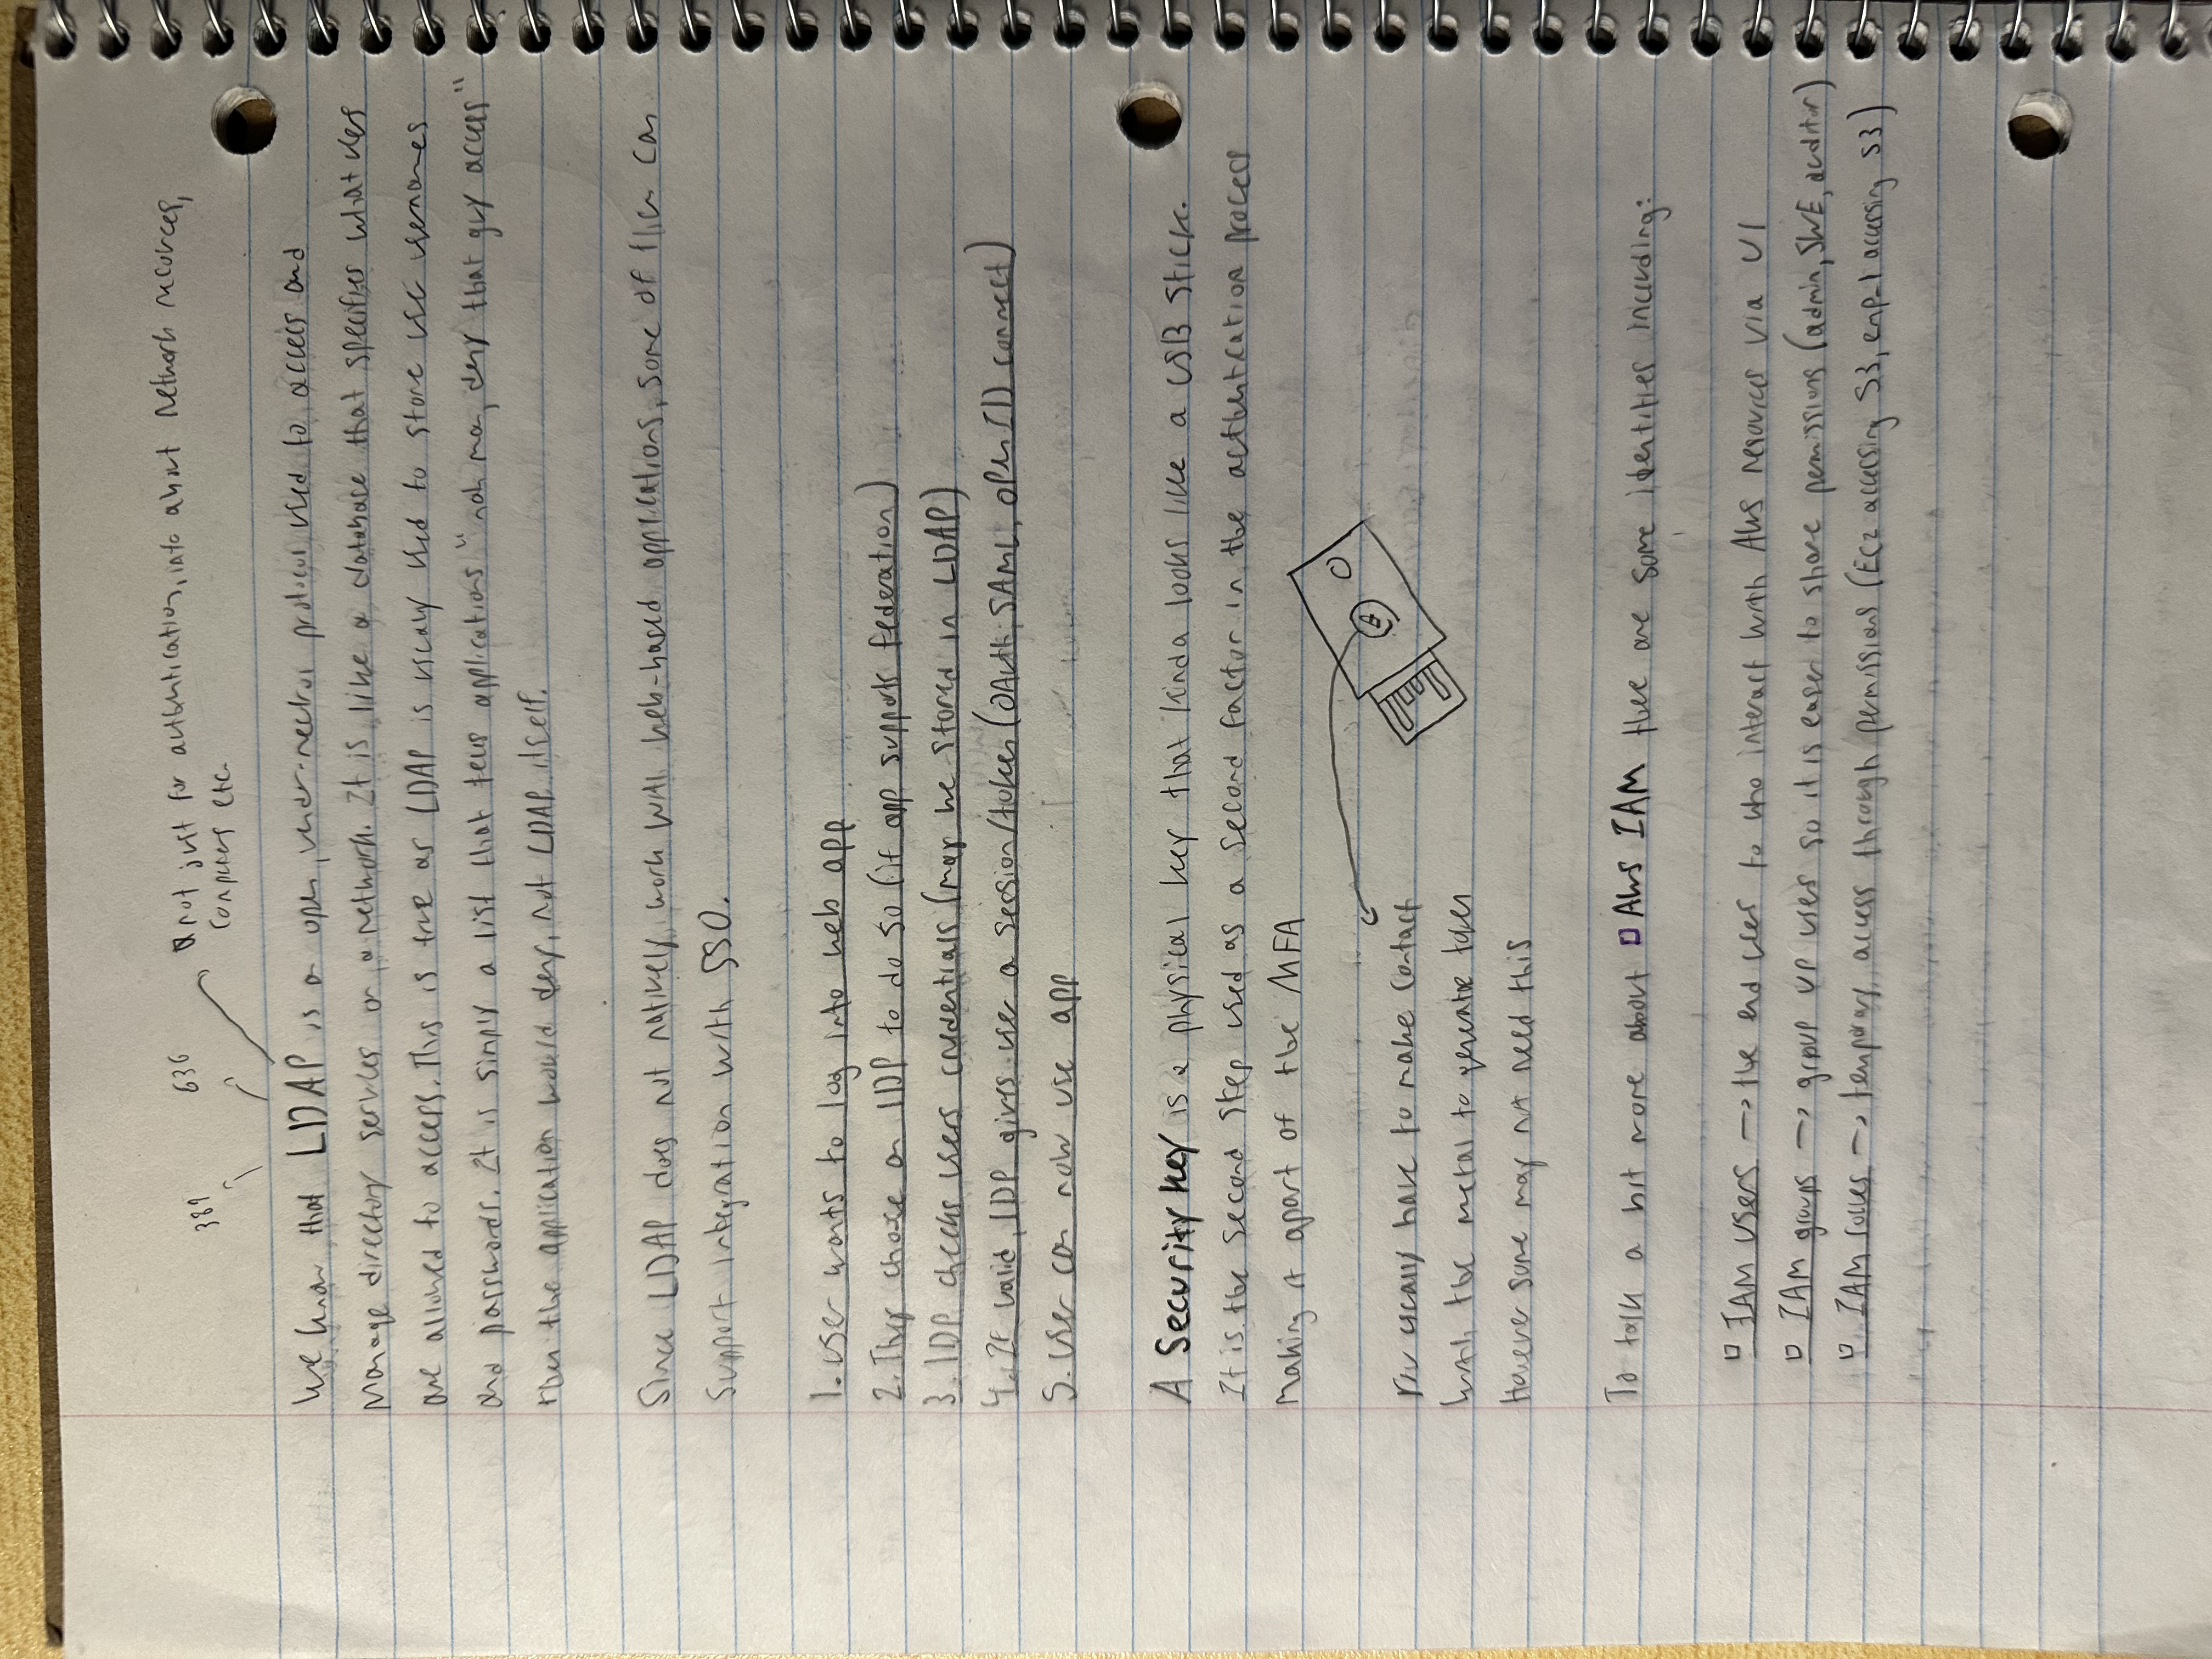 389 636 not just for authentication, info about network recources,
computers etc.
We know that LDAP is a open, vendor-neutral protocol used to access and
manage directory services on a network. It is like a database that specifies what users
are allowed to access. This is true as LDAP is usually used to store user usernames
and passwords. It is simply a list that tells applications "nah man, deny that guy access"
then the application would deny, not LDAP itself.
Since LDAP does not natively work with web-based applications, some of them can
support integration with SSO.
1. User wants to log into web app
2. They choose an IDP to do so (if app supports federation)
3. IDP checks users credentials (may be stored in LDAP)
4. If valid, IDP gives user a session/token (OAuth, SAML, OpenID connect)
5. User can now use app
A Security key is a physical key that kinda looks like a USB stick.
It is the second step used as a second factor in the authentication process
making it apart of the MFA
You usually have to make contact
with the metal to generate token
However some may not need this
To talk a bit more about AWS IAM there are some identities including:
IAM users → the end user to who interact with AWS resources via UI
IAM groups → group up users so it is easier to share permissions (admin, SWE, auditor)
IAM roles → temporary access through permissions (EC2 accessing S3, emp_1 accessing S3)